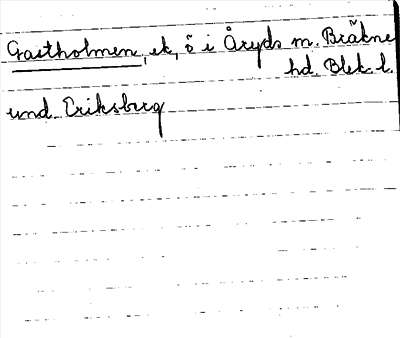 Gastholmen, ek, ö i Åryds m. Bräkne
hd. Blek. l.
und. Eriksberg